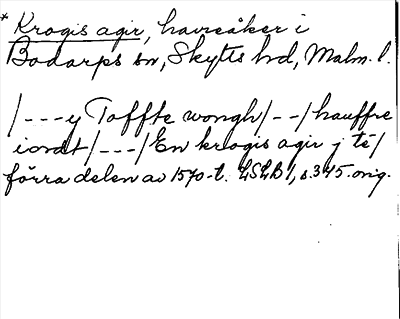 * Krogis agir, havreåker i
Bodarps sn, Skytts hd, Malm. l.
/---y Toffte wongh/--/hauffre
iordt/---/En krogis agir j té/
förra delen av 1570-t. LSLB 1, s. 345. orig.